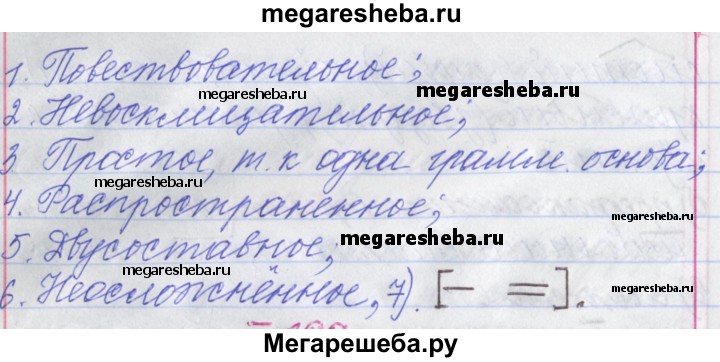 megaresheba.ru
1. Повествовательное;
megaresheba.ru
2. Невосклицательное;
3 Простое, т.к одна грамм. основа;
megaresheba.ru
4. Распространенное;
megaresheba.ru
5. Двусоставное;
megaresheba.ru
megaresheba.ru
megaresheba.ru
6. Неосложнённое, 7). [— =].
Мегарешеба.ру